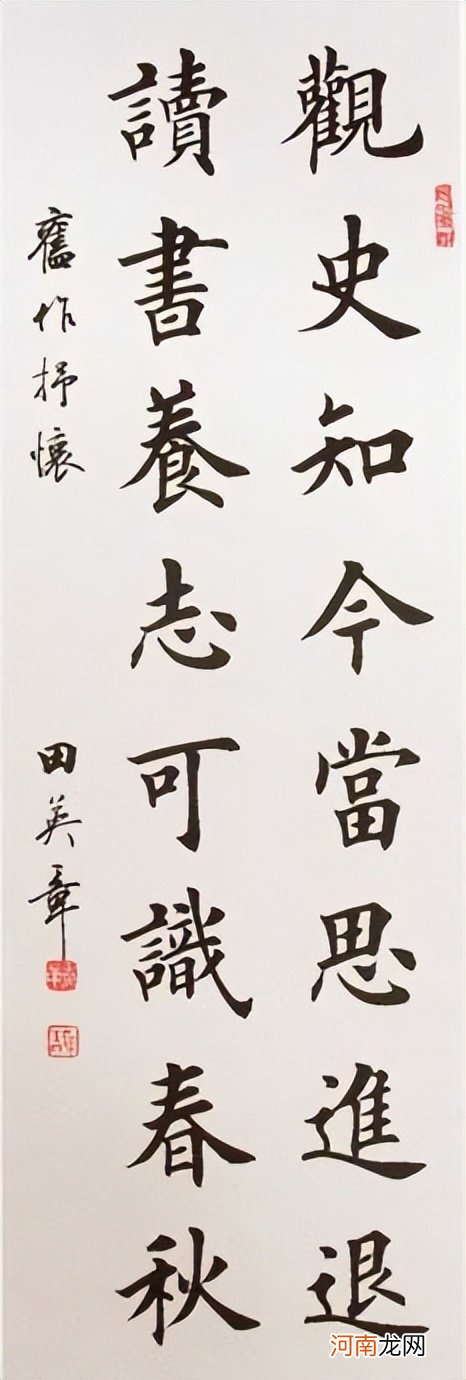 觀史知今當思進退
讀書養志可識春秋
舊作抒懷
田英章
河南龙网